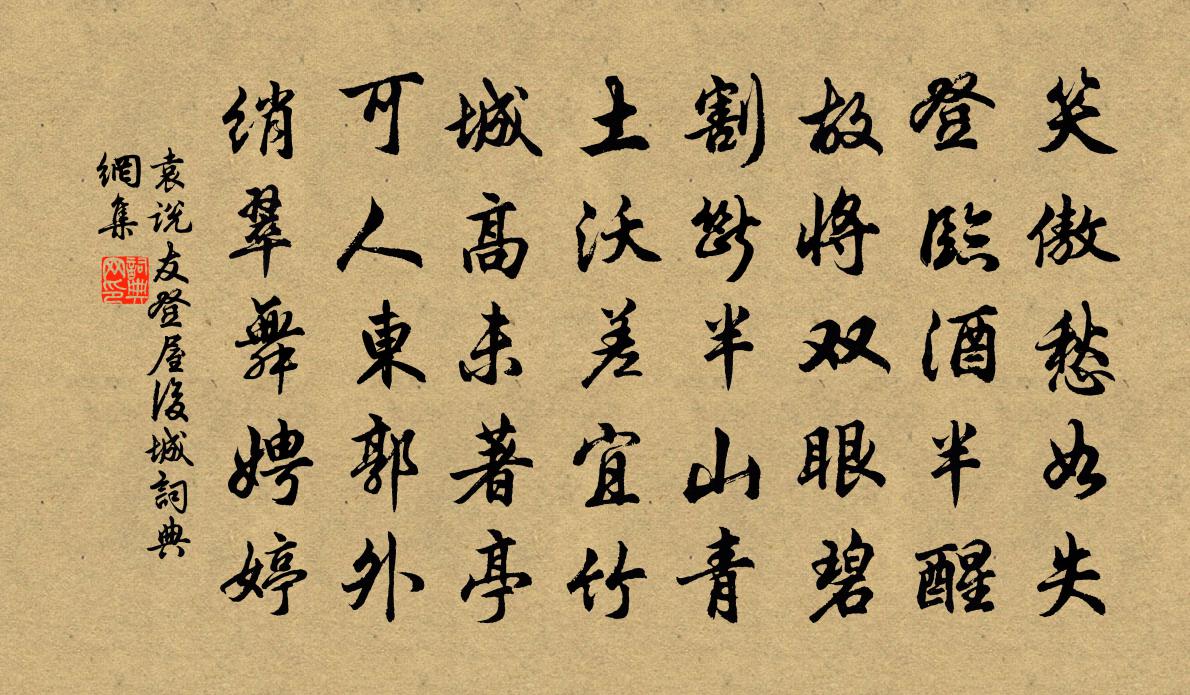 笑傲愁如失
登臨酒半醒
故将双眼碧
割斷半山青
土沃差宜竹
城高未著亭
可人東郭外
绡翠舞娉婷
袁说友登屋後城詞典
網集
詞典
网印